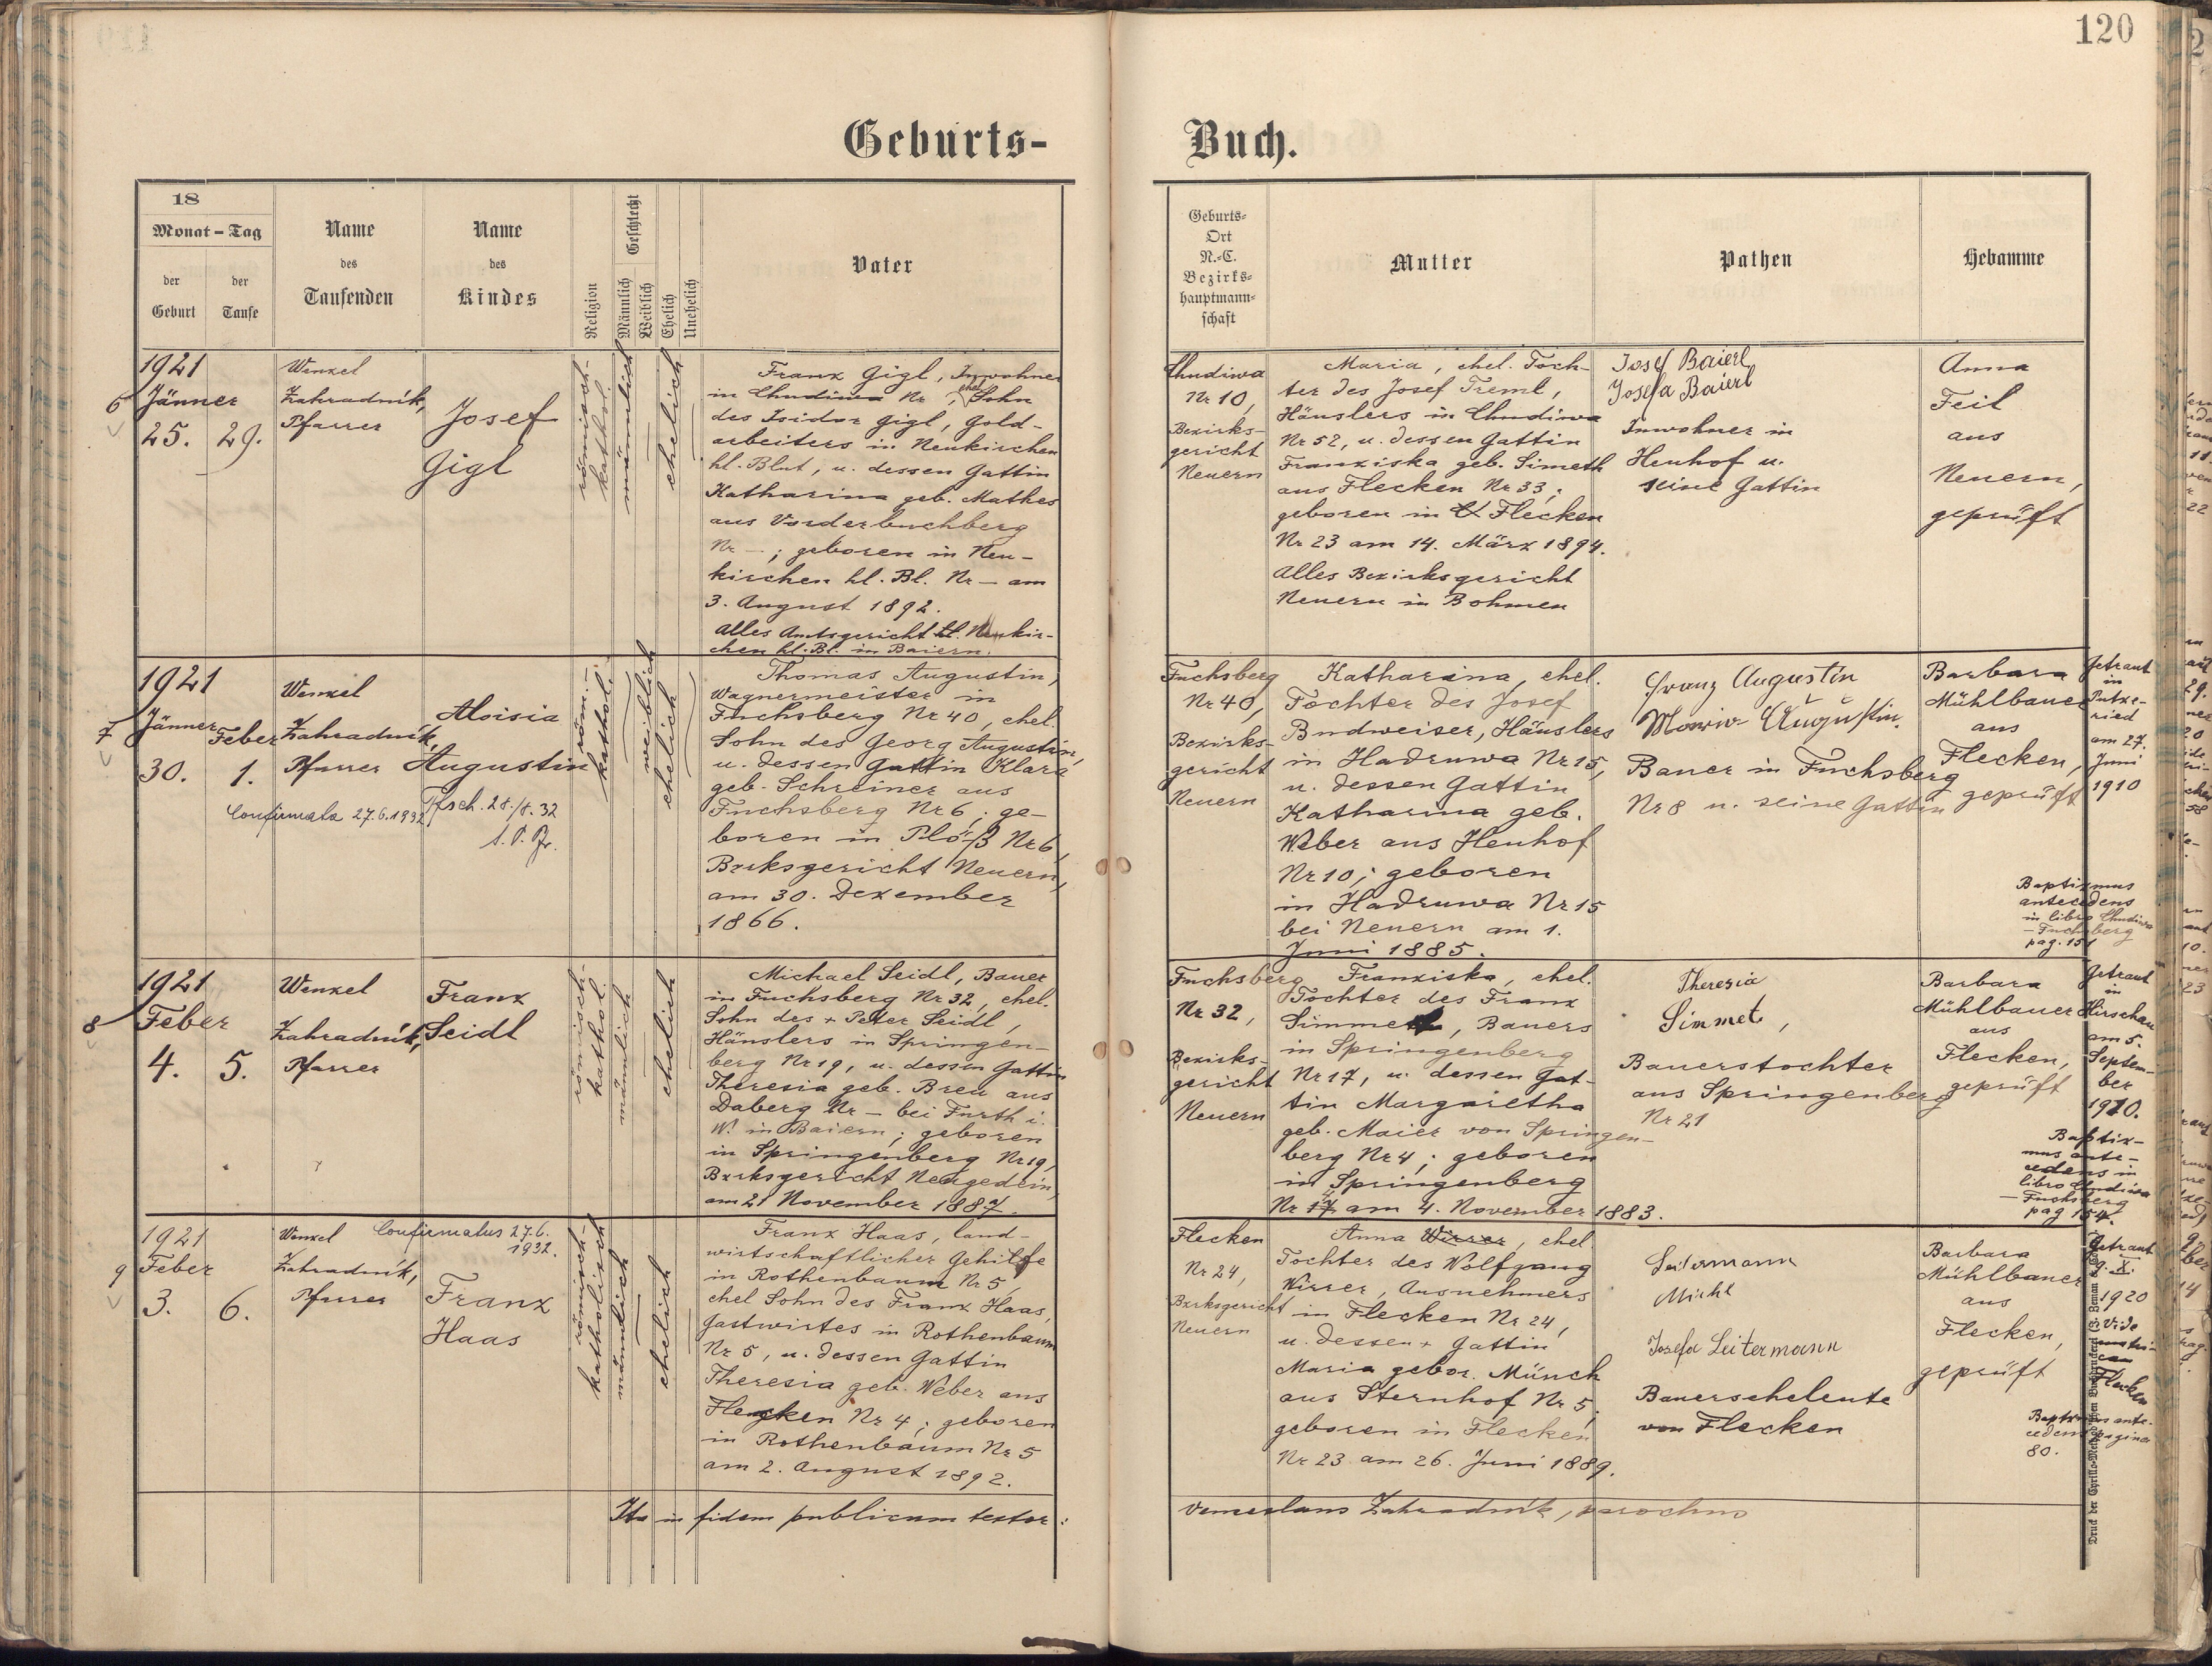 120
Geburts-
Buch.
18
Monat - Tag
der
Geburt
der
Taufe
Name
des
Taufenden
Name
des
Kindes
Religion
Geschlecht
Männlich
Weiblich
Ehelich
Unehelich
Vater
Geburts-
Ort
N.-C.
Bezirks-
hauptmann-
schaft
Mutter
Pathen
Hebamme
6
1921
Jänner
25. 29.
Wenzel
Zahradník,
Pfarrer
Josef
Gigl
römisch-
kathol.
männlich
ehelich
Franz Gigl, Inwohner
in Chudiwa Nr , ehel. Sohn
des Isidor Gigl, Gold-
arbeiters in Neukirchen
hl. Blut, u. dessen Gattin
Katharina geb. Mathes
aus Vorderbuchberg
Nr - ; geboren in Neu-
kirchen hl. Bl. Nr - am
3. August 1892.
Alles Amtsgericht hl. Neukir-
chen hl. Bl. in Baiern.
Chudiwa
Nr 10,
Bezirks-
gericht
Neuern
Maria, ehel. Toch-
ter des Josef Treml,
Häuslers in Chudiwa
Nr 52, u. dessen Gattin
Franziska geb. Simeth
aus Flecken Nr 33;
geboren in Flecken
Nr 23 am 14. März 1894.
Alles Bezirksgericht
Neuern in Bohmen
Josef Baierl
Josefa Baierl
Inwohner in
Heuhof u.
seine Gattin
Anna
Feil
aus
Neuern,
geprüft
7
1921
Jänner Feber
30. 1.
Wenzel
Zahradník,
Pfarrer
Confirmata 27.6.1932
Aloisia
Augustin
Tfsch. 28./8.32
röm.-
kathol.
weiblich
ehelich
Thomas Augustin,
Wagnermeister in
Fuchsberg Nr 40, ehel.
Sohn des Georg Augustin,
u. dessen Gattin Klara
geb. Schreiner aus
Fuchsberg Nr 6; ge-
boren in Plöß Nr 6,
Bzrksgericht Neuern,
am 30. Dezember
1866.
Fuchsberg
Nr 40,
Bezirks-
gericht
Neuern
Katharina, ehel.
Tochter des Josef
Budweiser, Häuslers
in Hadruwa Nr 15,
u. dessen Gattin
Katharina geb.
Weber aus Heuhof
Nr 10; geboren
in Hadruwa Nr 15
bei Neuern am 1.
Juni 1885.
Franz Augustin
Maria Augustin.
Bauer in Fuchsberg
Nr 8 u. seine Gattin
Barbara
Mühlbauer
aus
Flecken,
geprüft
Getraut
in
Putze-
ried
am 27.
Juni
1910
Baptizmus
antecedens
in libro Chudiwa
- Fuchsberg
pag. 151
8
1921
Feber
4. 5.
Wenzel
Zahradník,
Pfarrer
Franz
Seidl
römisch-
kathol.
männlich
ehelich
Michael Seidl, Bauer
in Fuchsberg Nr 32, ehel.
Sohn des + Peter Seidl,
Häuslers in Springen-
berg Nr 19, u. dessen Gattin
Theresia geb. Breu aus
Daberg Nr - bei Furth i.
W. in Baiern; geboren
in Springenberg Nr 19,
Bzrksgericht Neugedein,
am 21 November 1887.
Fuchsberg
Nr 32,
Bezirks-
gericht
Neuern
Franziska, ehel.
Tochter des Franz
Simmet, Bauers
in Springenberg
Nr 17, u. dessen Gat-
tin Margaretha
geb. Maier von Springen-
berg Nr 4; geboren
in Springenberg
Nr 17 am 4. November 1883.
Theresia
Simmet,
Bauerstochter
aus Springenberg
Nr 21
Barbara
Mühlbauer
aus
Flecken,
geprüft
Getraut
in
Hirschau
am 5.
Septem-
ber
1920.
Baptiz-
mus ante-
cedens in
libro Chudiwa
- Fuchsberg
pag 154.
9
1921
Feber
3. 6.
Wenzel
Zahradník,
Pfarrer
Confirmatus 27.6.
1932.
Franz
Haas
römisch-
katholisch
männlich
ehelich
Franz Haas, land-
wirtschaftlicher Gehilfe
in Rothenbaum Nr 5,
ehel Sohn des Franz Haas,
Gastwirtes in Rothenbaum
Nr 5, u. dessen Gattin
Theresia geb. Weber aus
Flecken Nr 4; geboren
in Rothenbaum Nr 5
am 2. August 1892.
Flecken
Nr 24,
Bzrksgericht
Neuern
Anna Wirrer, ehel.
Tochter des Wolfgang
Wirrer, Ausnehmers
in Flecken Nr 24,
u. dessen + Gattin
Maria gebor. Münch
aus Sternhof Nr 5;
geboren in Flecken
Nr 23 am 26. Juni 1889.
Josefa Leitermann
Bauerseheleute
von Flecken
Barbara
Mühlbauer
aus
Flecken,
geprüft
Getraut
9. X.
1920
Vide
Flecken
Baptizmus ante-
cedens pagina
80.
Ita in fidem publicam testor:
Venceslaus Zahradník, parochus